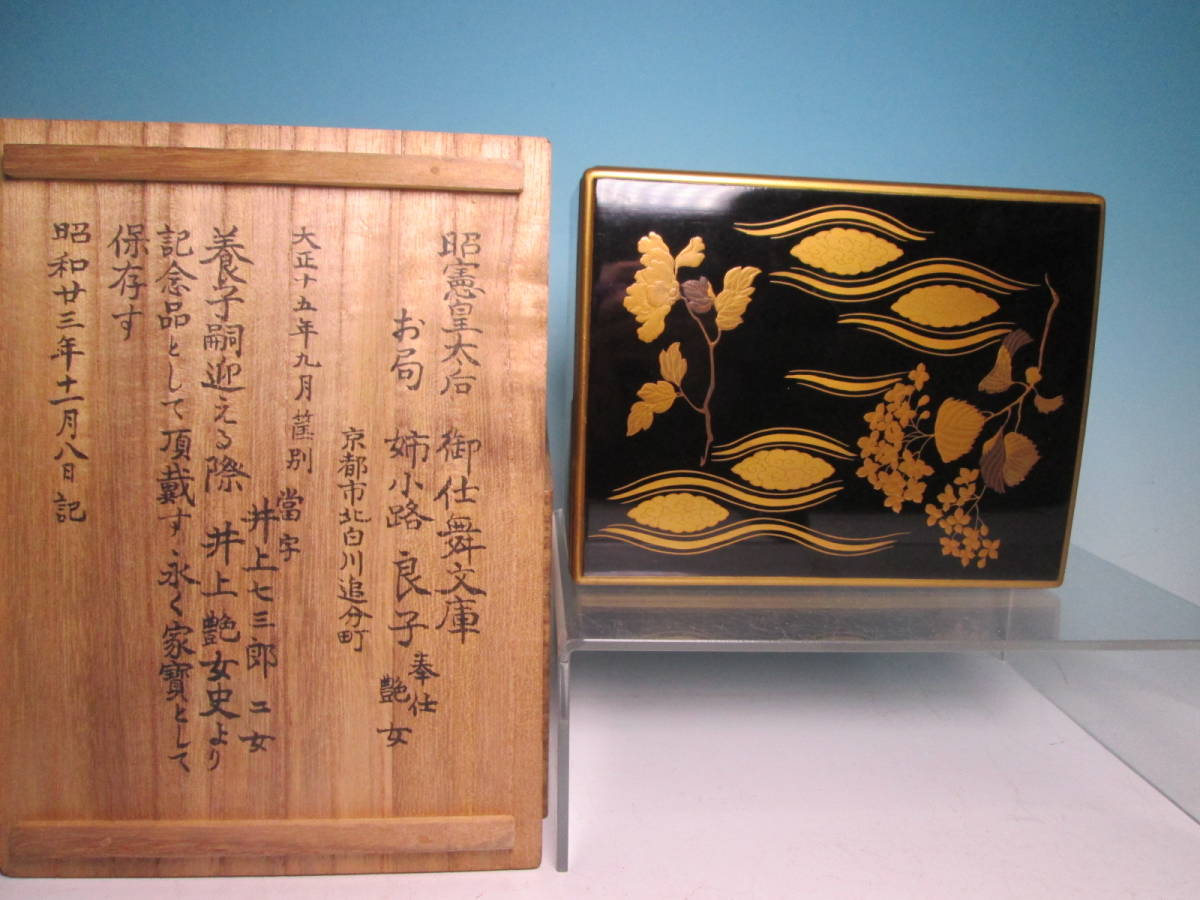 昭憲皇太后 御仕舞文庫
お局 姉小路 良子 奉仕 艶女
京都市北白川追分町
大正十五年九月 筐別 當字
井上七三郎 二女
養子嗣迎える際 井上艶女史より
記念品として頂戴す 永く家寳として
保存す
昭和廿三年十一月八日 記